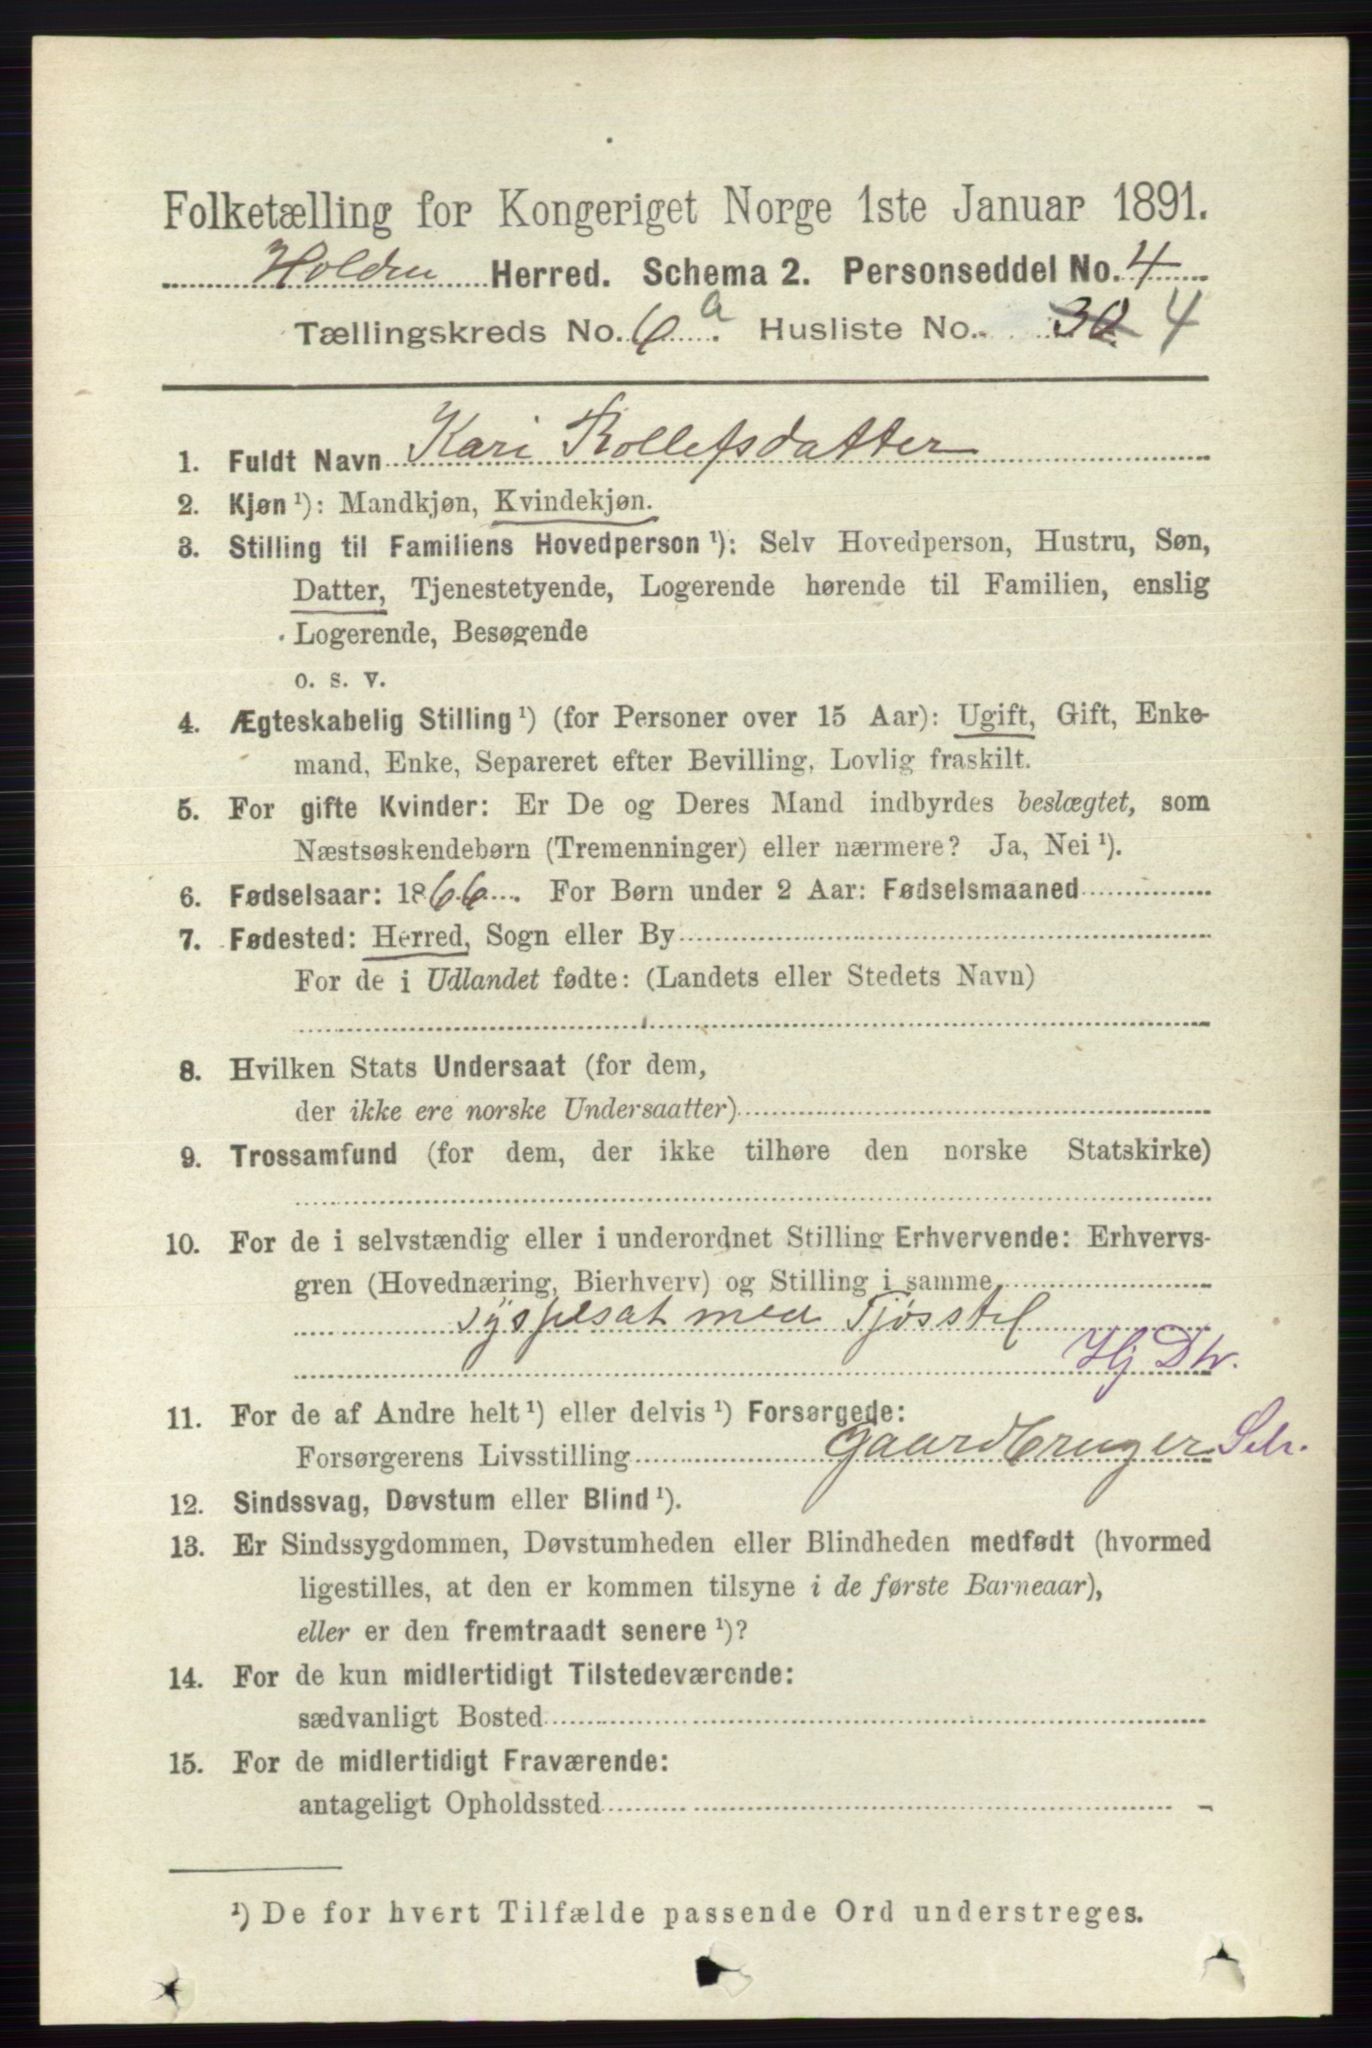 Folketælling for Kongeriget Norge 1ste Januar 1891.
Holden Herred. Schema 2. Personseddel No. 4
Tællingskreds No. 6 a. Husliste No. 30 4
1. Fuldt Navn Kari Rollefsdatter
2. Kjøn ¹): Mandkjøn, Kvindekjøn.
3. Stilling til Familiens Hovedperson ¹): Selv Hovedperson, Hustru, Søn,
Datter, Tjenestetyende, Logerende hørende til Familien, enslig
Logerende, Besøgende
o. s. v.
4. Ægteskabelig Stilling ¹) (for Personer over 15 Aar): Ugift, Gift, Enke-
mand, Enke, Separeret efter Bevilling, Lovlig fraskilt.
5. For gifte Kvinder: Er De og Deres Mand indbyrdes beslægtet, som
Næstsøskendebørn (Tremenninger) eller nærmere? Ja, Nei ¹).
6. Fødselsaar: 1866. For Børn under 2 Aar: Fødselsmaaned
7. Fødested: Herred, Sogn eller By
For de i Udlandet fødte: (Landets eller Stedets Navn)
8. Hvilken Stats Undersaat (for dem,
der ikke ere norske Undersaatter)
9. Trossamfund (for dem, der ikke tilhøre den norske Statskirke)
10. For de i selvstændig eller i underordnet Stilling Erhvervende: Erhvervs-
gren (Hovednæring, Bierhverv) og Stilling i samme
Sysselsat med Fjøsstel
Hj Dtr.
11. For de af Andre helt ¹) eller delvis ¹) Forsørgede:
Forsørgerens Livsstilling Gaardbruger Selv.
12. Sindssvag, Døvstum eller Blind ¹).
13. Er Sindssygdommen, Døvstumheden eller Blindheden medfødt (hvormed
ligestilles, at den er kommen tilsyne i de første Barneaar),
eller er den fremtraadt senere ¹)?
14. For de kun midlertidigt Tilstedeværende:
sædvanligt Bosted
15. For de midlertidigt Fraværende:
antageligt Opholdssted
¹) De for hvert Tilfælde passende Ord understreges.